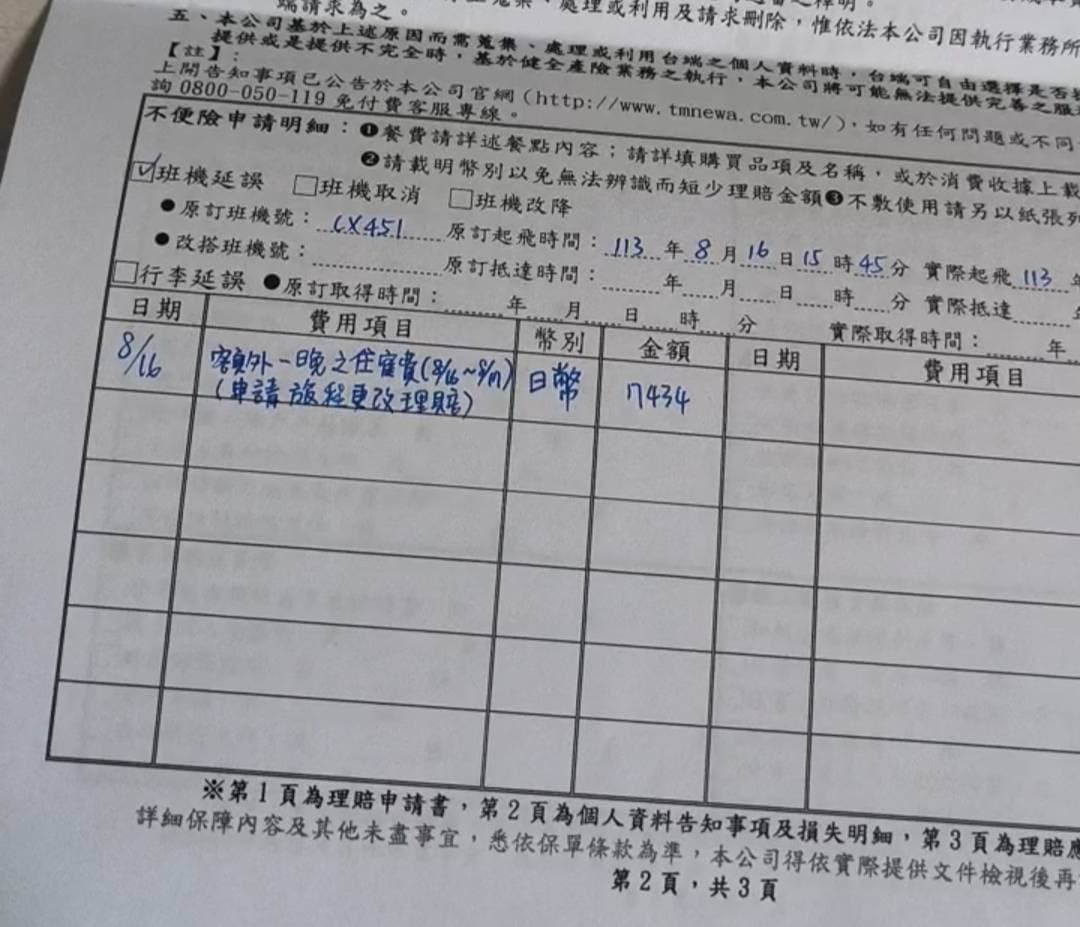 端請求為之。
處理或利用及請求刪除,惟依法本公司因執行業務所
五、本公司基於上述原因而需蒐集、處理或利用台端之個人資料時,台端可自由選擇是否
提供或是提供不完全時,基於健全產險業務之執行,本公司將可能無法提供完善之服
【註】:
上開告知事項已公告於本公司官網(http://www.tmnewa.com.tw/),如有任何問題或不同
詢 0800-050-119 免付費客服專線。
不便險申請明細:❶餐費請詳述餐點內容;請詳填購買品項及名稱,或於消費收據上載
❷請載明幣別以免無法辨識而短少理賠金額❸不敷使用請另以紙張列
☑班機延誤 □班機取消 □班機改降
●原訂班機號:CX451 原訂起飛時間:113年8月16日15時45分 實際起飛113年
●改搭班機號: 原訂抵達時間: 年 月 日 時 分 實際抵達 年
□行李延誤 ●原訂取得時間: 年 月 日 時 分 實際取得時間: 年
日期 費用項目 幣別 金額 日期 費用項目
8/16 額外一晚之住宿費(8/16~8/17) 日幣 17434
(申請旅程更改理賠)
※第1頁為理賠申請書,第2頁為個人資料告知事項及損失明細,第3頁為理賠應
詳細保障內容及其他未盡事宜,悉依保單條款為準,本公司得依實際提供文件檢視後再
第2頁,共3頁